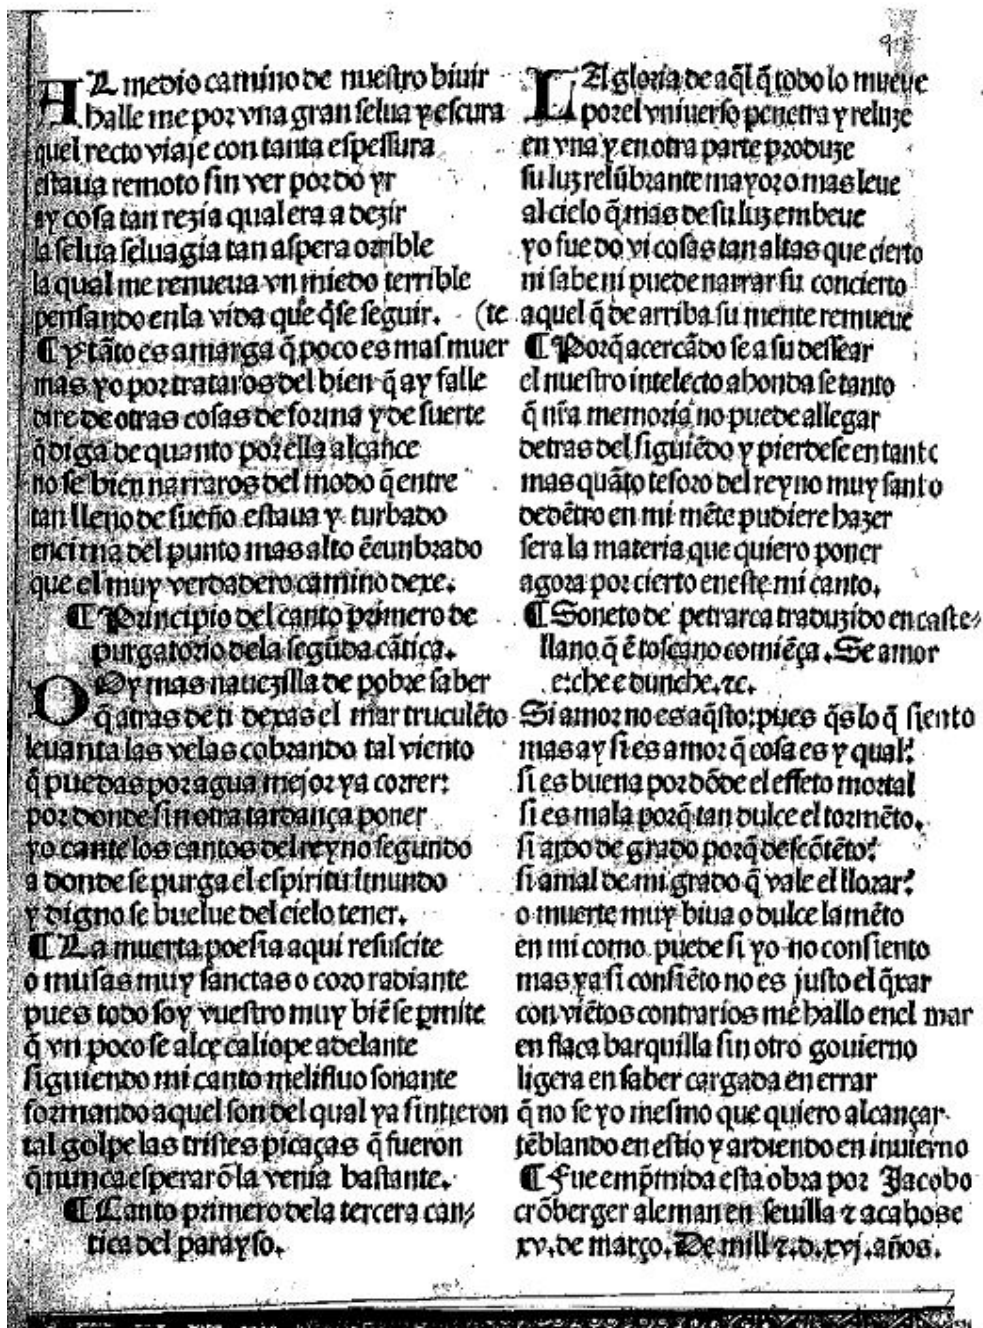 AL medio camino de nuestro biuir
halle me por vna gran selua y escura
quel recto viaje con tanta espessura
estaua remoto sin ver por do yr
ay cosa tan rezia qual era a dezir
la selua seluagia tan aspera orrible
la qual me renueua vn miedo terrible
pensando enla vida que q̃se seguir. (te
¶ Y tãto es amarga q̃ poco es mas muer
mas yo por trataros del bien q̃ ay falle
dire de otras cosas de forma y de suerte
q̃ diga de quanto por ella alcance
no se bien narraros del modo q̃ entre
tan lleno de sueño estaua y turbado
encima del punto mas alto ẽcunbrado
que el muy verdadero camino dexe.
¶ Principio del canto primero de
purgatorio dela segũda cãtica.
OY mas nauezilla de pobre saber
q̃ atras de ti dexas el mar truculẽto
leuanta las velas cobrando tal viento
q̃ puedas por agua mejor ya correr:
por donde sin otra tardança poner
yo cante los cantos del reyno segundo
a donde se purga el espiritu imundo
y digno se buelue del cielo tener.
¶ La muerta poesia aqui resuscite
o musas muy sanctas o coro radiante
pues todo soy vuestro muy biẽ se pmite
q̃ vn poco se alce caliope adelante
siguiendo mi canto melifluo sonante
formando aquel son del qual ya sintieron
tal golpe las tristes picaças q̃ fueron
q̃ nunca esperarõ la venia bastante.
¶ Canto primero dela tercera can/
tica del parayso.
LA gloria de aq̃l q̃ todo lo mueue
por el vniuerso penetra y reluze
en vna y en otra parte produze
su luz relũbrante mayor o mas leue
al cielo q̃ mas de su luz embeue
yo fue do vi cosas tan altas que cierto
ni sabe ni puede narrar su concierto
aquel q̃ de arriba su mente remueue
¶ Porq̃ acercãdo se a su dessear
el nuestro intelecto ahonda se tanto
q̃ nr̃a memoria no puede allegar
detras del siguiẽdo y pierdese en tanto
mas quãto tesoro del reyno muy santo
dedẽtro en mi mẽte pudiere hazer
sera la materia que quiero poner
agora por cierto eneste mi canto.
¶ Soneto de petrarca traduzido en caste/
llano q̃ ẽ toscano comiẽça. Se amor
e:che e dunche. ⁊c.
Si amor no es aq̃sto: pues q̃s lo q̃ siento
mas ay si es amor q̃ cosa es y qual?
si es buena por dõde el effeto mortal
si es mala porq̃ tan dulce el tormẽto.
si ardo de grado porq̃ descõtẽto?
si amal de mi grado q̃ vale el llorar?
o muerte muy biua o dulce lamẽto
en mi como puede si yo no consiento
mas ya si consiẽto no es justo el q̃xar
con viẽtos contrarios me hallo enel mar
en flaca barquilla sin otro gouierno
ligera en saber cargada en errar
q̃ no se yo mesmo que quiero alcançar
tẽblando en estio y ardiendo en inuierno
¶ Fue emp̃mida esta obra por Jacobo
crõberger aleman en seuilla ⁊ acabose
xv. de março. De mill ⁊. d. xvj. años.